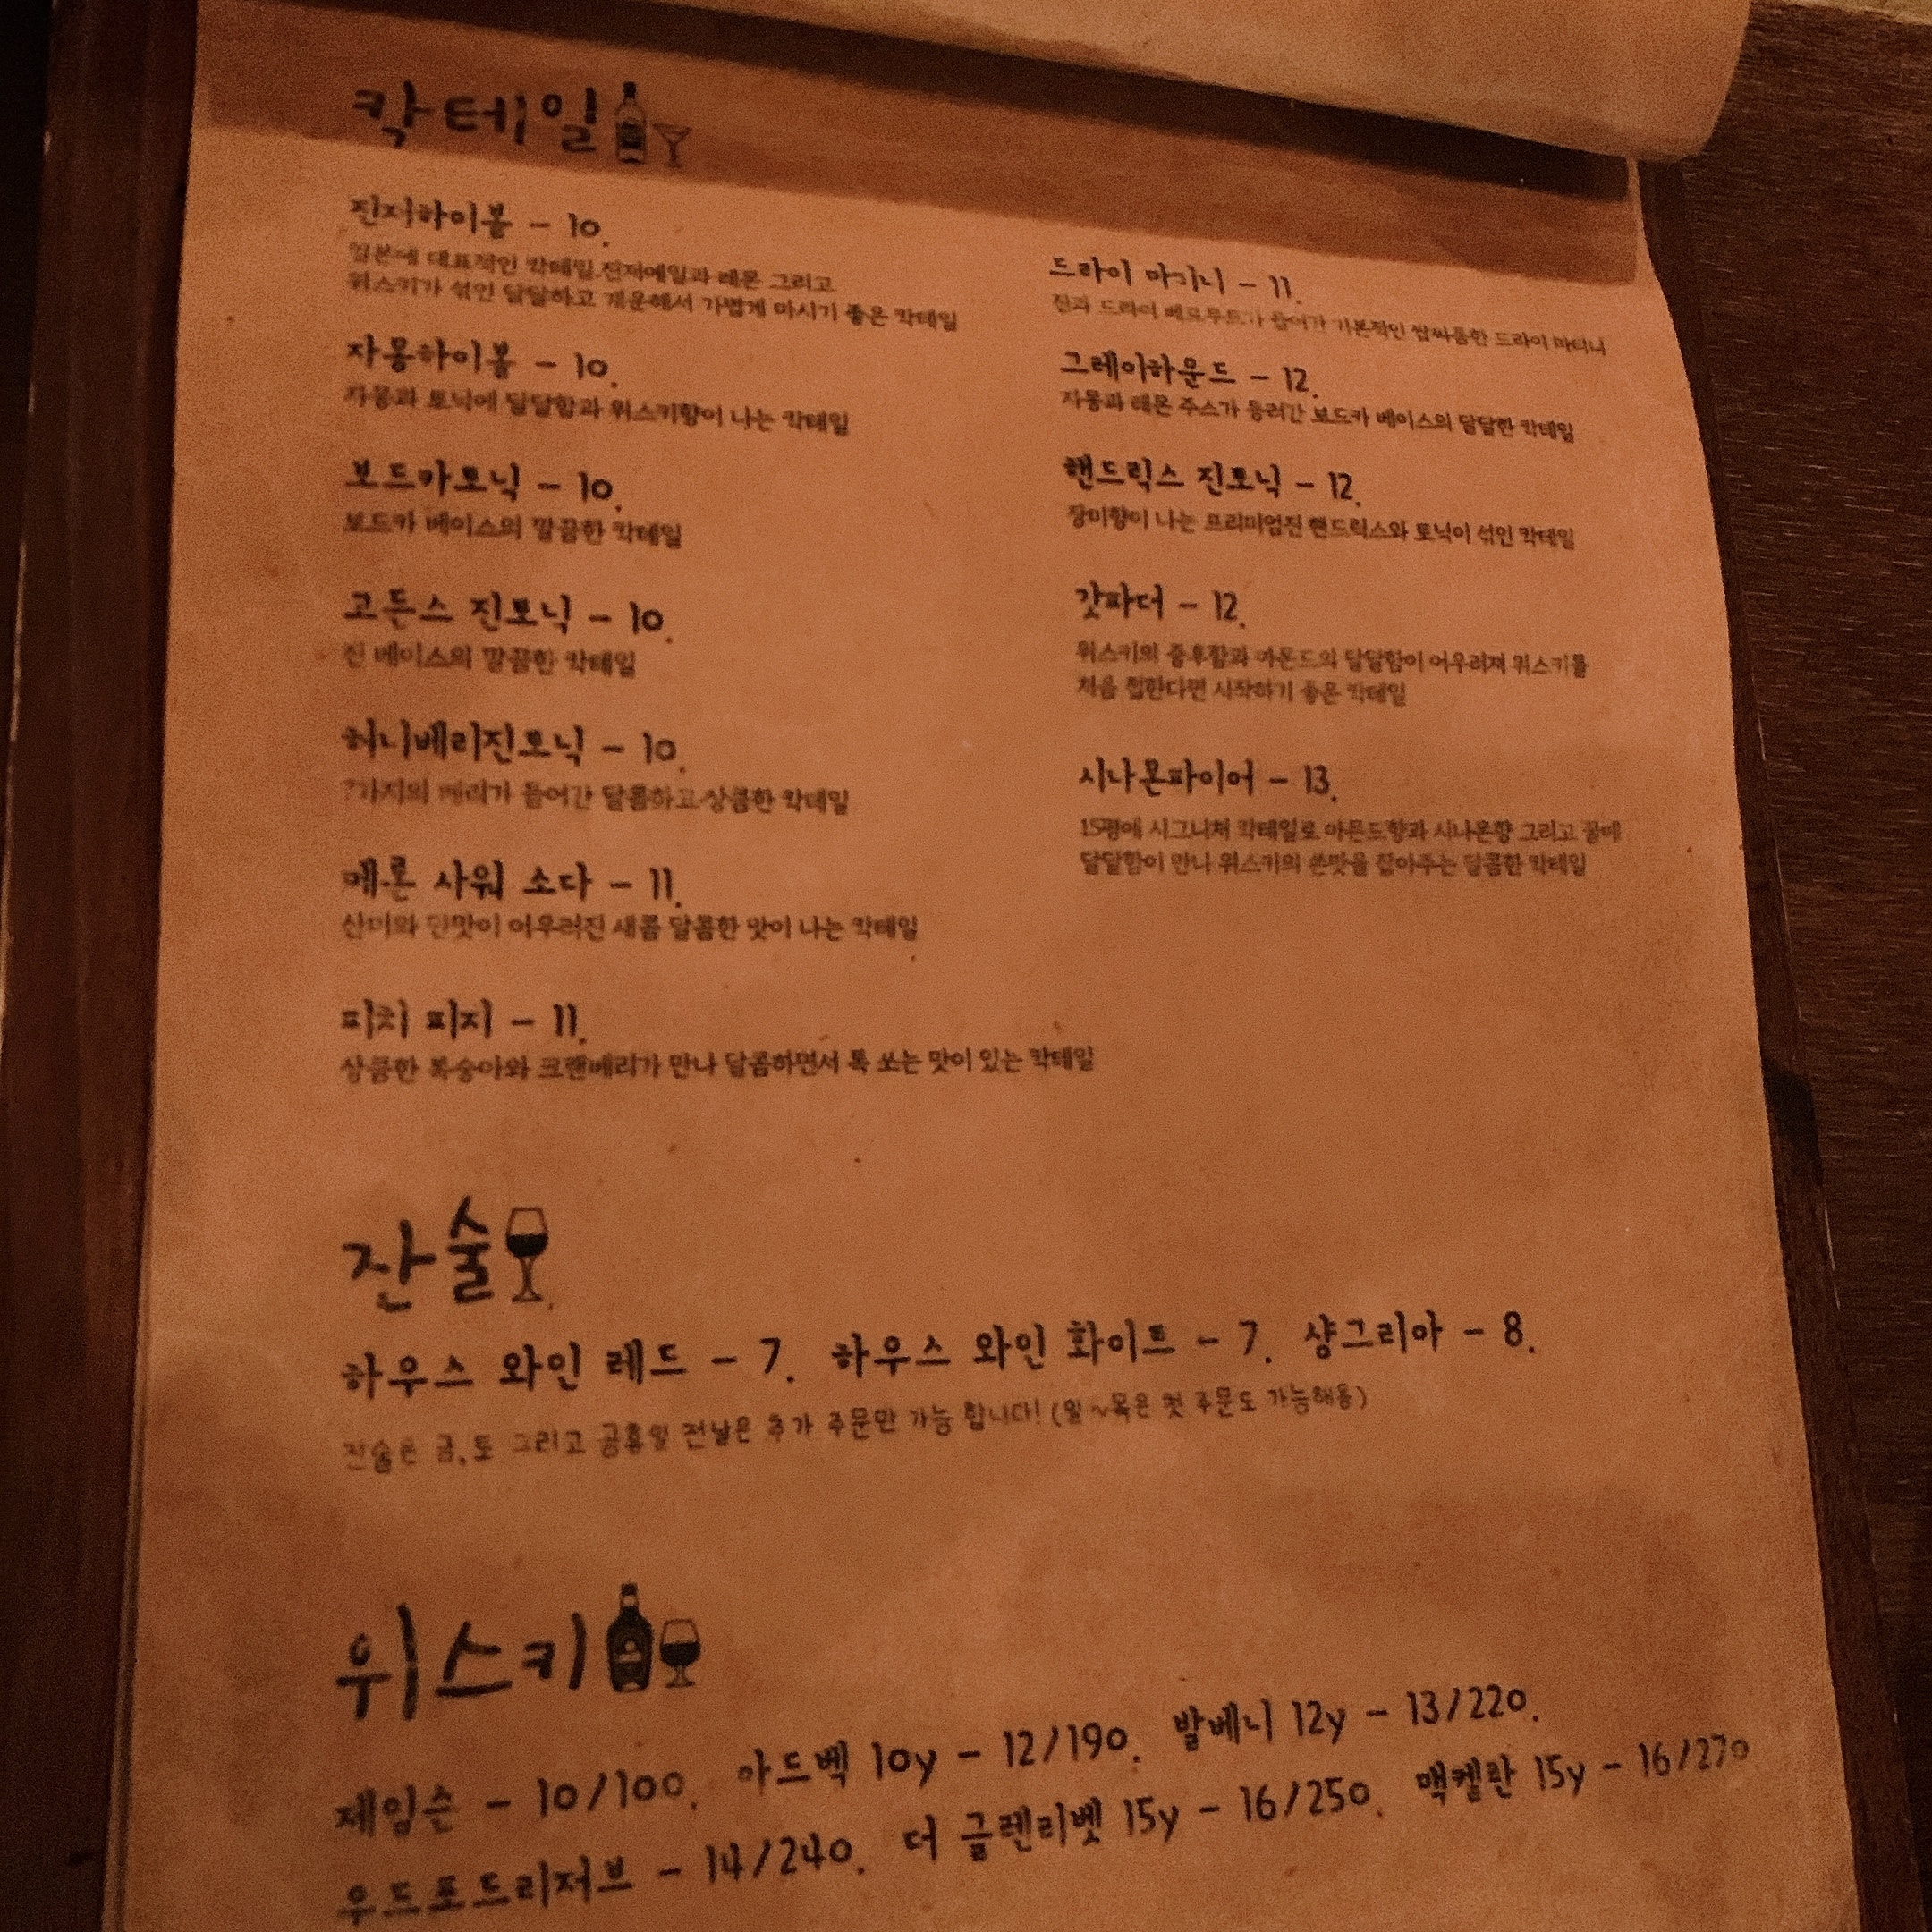 칵테일
진저하이볼 - 10.
일본에 대표적인 칵테일.진저에일과 레몬 그리고
위스키가 섞인 달달하고 개운해서 가볍게 마시기 좋은 칵테일
자몽하이볼 - 10.
자몽과 토닉에 달달함과 위스키향이 나는 칵테일
보드카토닉 - 10.
보드카 베이스의 깔끔한 칵테일
고든스 진토닉 - 10.
진 베이스의 깔끔한 칵테일
허니베리진토닉 - 10.
?가지의 베리가 들어간 달콤하고 상큼한 칵테일
메론 사워 소다 - 11.
산미와 단맛이 어우러진 새콤 달콤한 맛이 나는 칵테일
피치 피지 - 11.
상큼한 복숭아와 크랜베리가 만나 달콤하면서 톡 쏘는 맛이 있는 칵테일
드라이 마티니 - 11.
진과 드라이 베르무트가 들어가 기본적인 쌉싸름한 드라이 마티니
그레이하운드 - 12.
자몽과 레몬 주스가 들러간 보드카 베이스의 달달한 칵테일
핸드릭스 진토닉 - 12.
장미향이 나는 프리미엄진 핸드릭스와 토닉이 섞인 칵테일
갓파더 - 12.
위스키의 중후함과 아몬드의 달달함이 어우러져 위스키를
처음 접한다면 시작하기 좋은 칵테일
시나몬파이어 - 13.
15평에 시그니처 칵테일로 아몬드향과 시나몬향 그리고 꿀에
달달함이 만나 위스키의 쓴맛을 잡아주는 달콤한 칵테일
잔술
하우스 와인 레드 - 7. 하우스 와인 화이트 - 7. 샹그리아 - 8.
잔술은 금,토 그리고 공휴일 전날은 추가 주문만 가능 합니다! (일~목은 첫 주문도 가능해용)
위스키
제임슨 - 10/100. 아드벡 10y - 12/190. 발베니 12y - 13/220.
우드포드리저브 - 14/240. 더 글렌리벳 15y - 16/250. 맥켈란 15y - 16/270